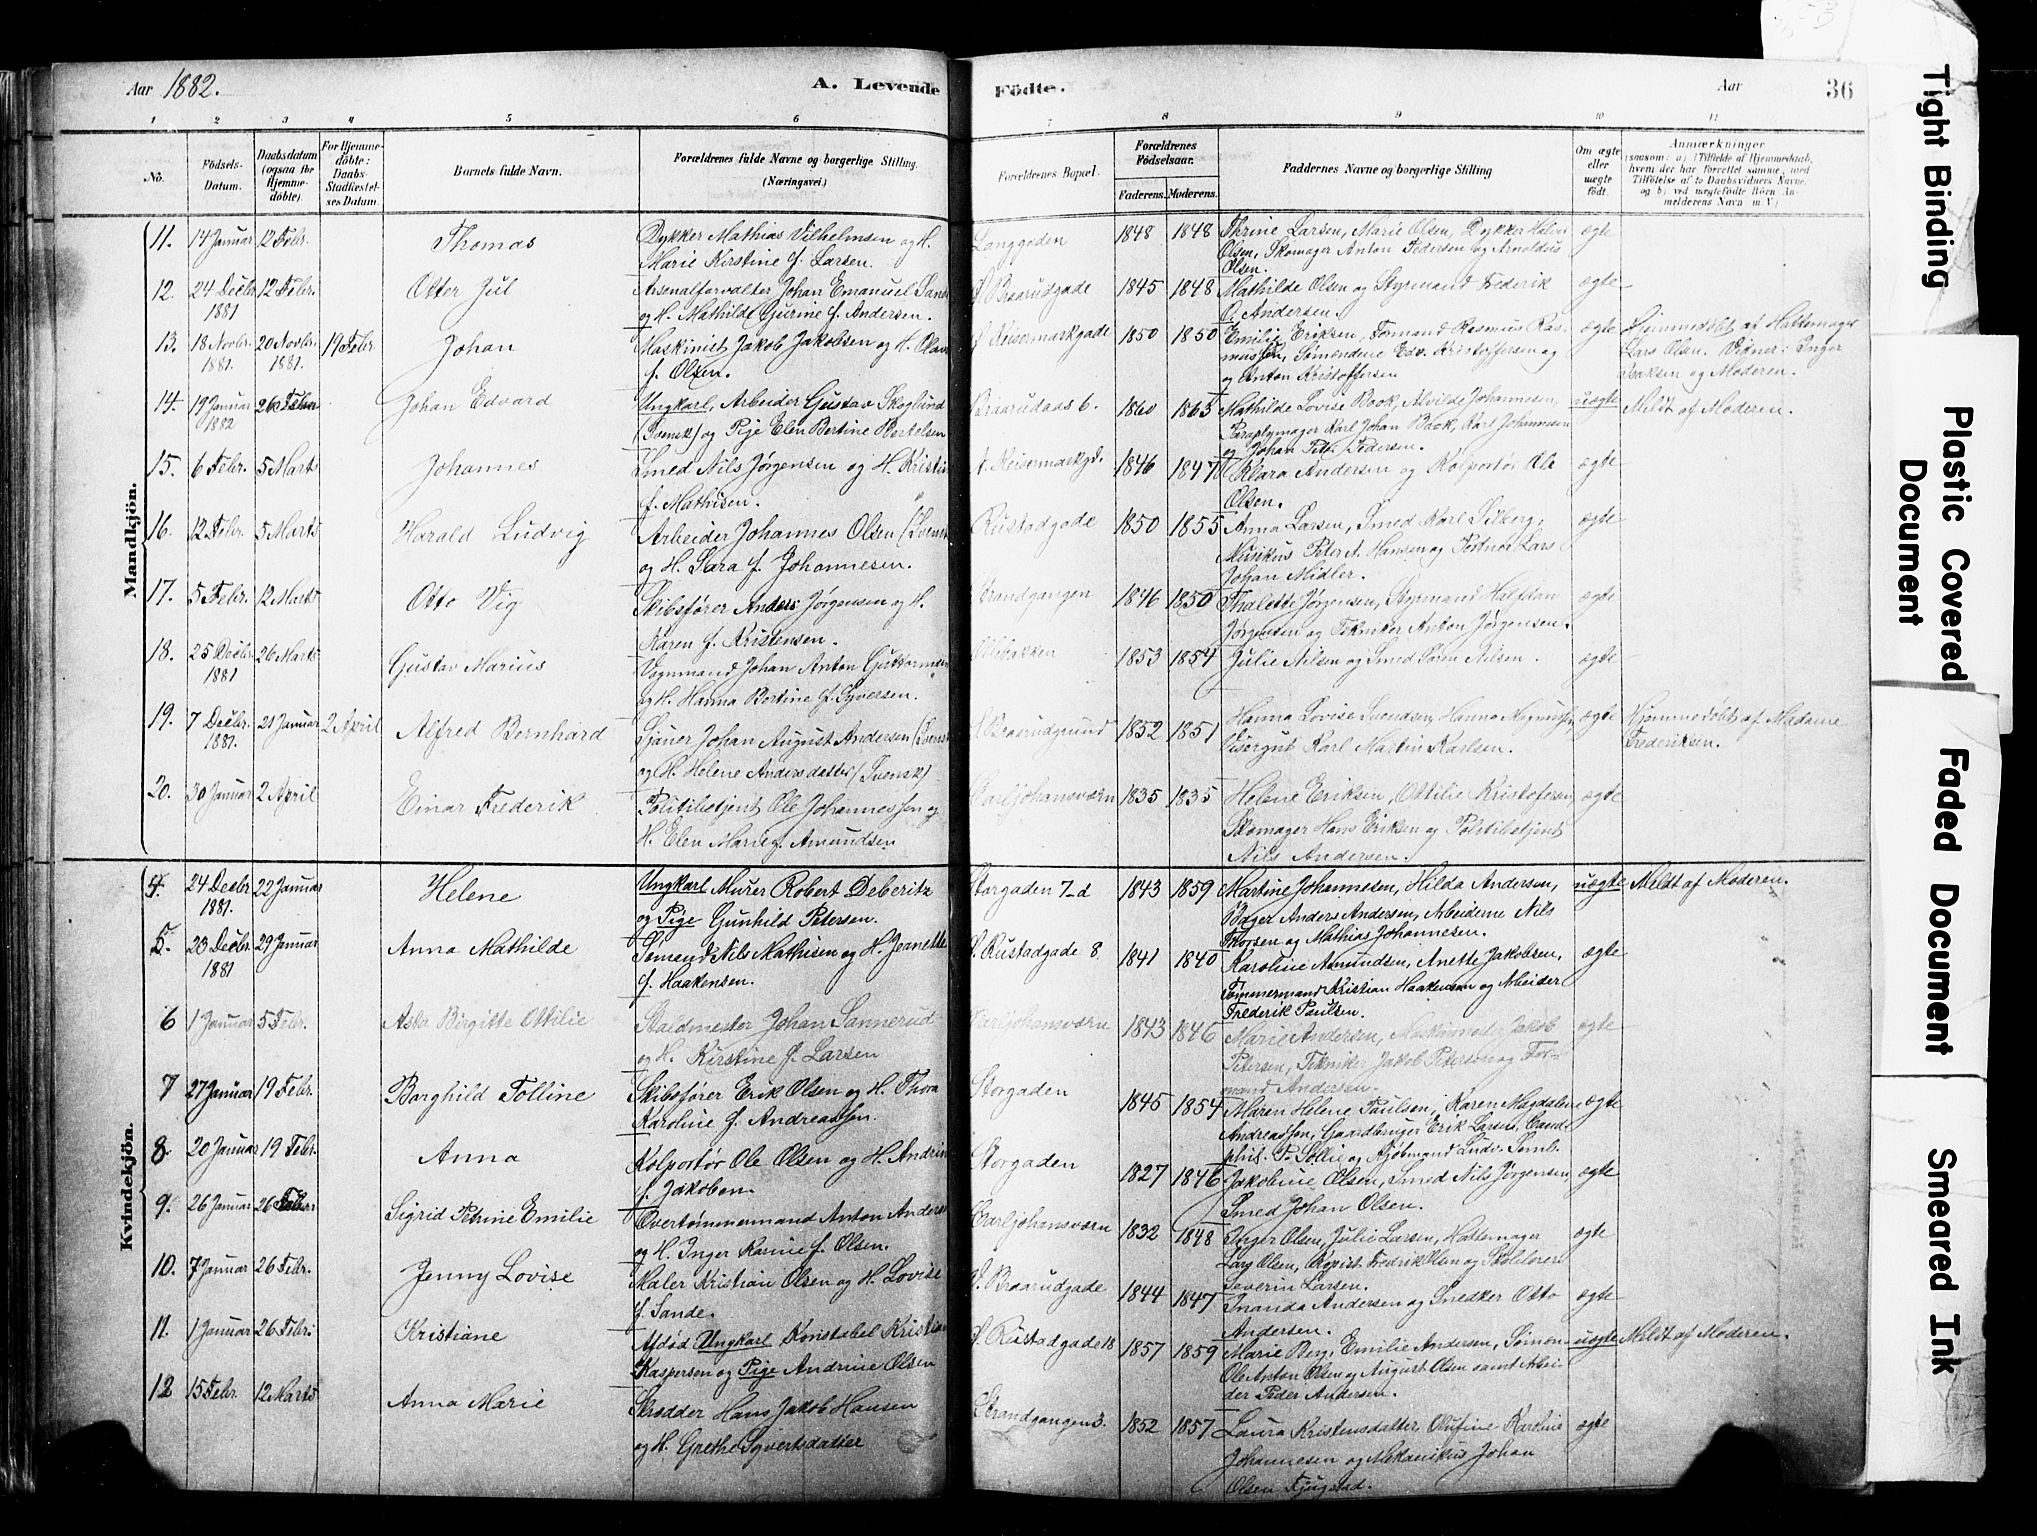 Aar 1882.
A. Levende
Födte.
Aar
36
1 2 3 4 5 6 7 8 9 10 11
No.
Födsels-Datum.
Daabsdatum (ogsaa for Hjemme-döbte).
For Hjemme-döbte: Daabs-Stadfæstelses Datum.
Barnets fulde Navn.
Forældrenes fulde Navne og borgerlige Stilling.
(Næringsvei.)
Forældrenes Bopæl.
Forældrenes Födselsaar.
Faderens. Moderens.
Faddernes Navne og borgerlige Stilling
Om ægte eller uægte födt.
Anmærkninger
(saasom: a) i Tilfælde af Hjemmedaab, hvem der har forrettet samme, med Tilföielse af to Daabsvidners Navne, og b) ved uægtefödte Börn Anmelderens Navn m. V.)
Mandkjön.
11. 14 Januar 12 Febr. Thomas Dykker Mathias Vilhelmsen og H. Langgaden 1848 1848 Thrine Larsen, Marie Olsen, Dykker Helm ægte
Marie Kirstine f. Larsen. Olsen, Skomager Anton Pedersen og Arnoldus
Olsen.
12. 24 Decbr. 12 Febr. Otter Jul Arsenalforvalter Johan Emanuel Sand Braarudgade 1845 1848 Mathilde Olsen og Styrmand Frederik ægte
1881 og H. Mathilde Gurine f. Andersen. O. Andersen.
13. 18 Novbr. 20 Novbr. 19 Febr. Johan Maskinist Jakob Jakobsen og H. Olava Reisermarkgade 1850 1850 Emilie Eriksen, Formand Rasmus Ras- ægte Hjemmedøbt af Hattemager
1881. 1881. f. Olsen. mussen, Sømendene Edv. Kristoffersen og Lars Olsen. Vidner: Inger
og Anton Kristoffersen Isaksen og Moderen.
14. 19 Januar 26 Febr. Johan Edvard Ungkarl, Arbeider Gustav Skoglund Braarudaas 6. 1860 1863 Mathilde Lovise Book, Alvilde Johannesen, uægte Meldt af Moderen.
1882 (Svensk) og Pige Elen Bertine Bertelsen Paraplymager Karl Johan Book, Karl Johannesen
og Johan Petr. Pedersen.
15. 6 Febr. 5 Marts Johannes Smed Nils Jørgensen og H. Kristin Reisermarkgd. 1846 1847 Klara Andersen og Kolportør Ole ægte
f. Mathisen. Olsen.
16. 12 Febr. 5 Marts Harald Ludvig Arbeider Johannes Olsen (Svensk Rustadgade 1850 1855 Anna Larsen, Smed Karl Silberg, ægte
og H. Sara f. Johannesen. Musikus Peter A. Hansen og Portner Lars
Johan Midler.
17. 5 Febr. 12 Marts Otto Vig Skibsfører Anders Jørgensen og H. Strandgangen 1846 1850 Thalette Jørgensen, Styrmand Halfdan ægte
Karen f. Kristensen. Jørgensen og Tekniker Anton Jørgensen.
18. 25 Decbr. 26 Marts Gustav Marius Vognmand Johan Anton Guttormsen 1853 1854 Julie Nilsen og Smed Søren Nilsen. ægte
1881 og H. Hanna Bertine f. Syversen.
19. 7 Decbr. 21 Januar 2 April Alfred Bernhard Sjauer Johan August Andersen (Svensk Braarudgrund 1852 1851 Hanna Lovise Svendsen, Hanna Magnussen, ægte Hjemmedøbt af Madame
1881. og H. Helene Andersdatter (Svensk) Visergut Karl Martin Karlsen. Frederiksen.
20. 30 Januar 2 April Einar Frederik Politibetjent Ole Johannessen og Carljohansværn 1835 1835 Helene Eriksen, Ottilie Kristofersen, ægte
H. Elen Marie f. Amundsen Skomager Hans Eriksen og Politibetjent
Nils Andersen.
Kvindekjön.
4. 24 Decbr. 22 Januar Helene Ungkarl Murer Robert Deberitz Storgaden 7-d 1843 1859 Martine Johannesen, Hilda Andersen, uægte Meldt af Moderen.
1881. og Pige Gunhild Petersen. Bager Anders Andersen, Arbeiderne Nils
Thorsen og Mathias Johannesen.
5. 23 Decbr. 29 Januar Anna Mathilde Sømand Nils Mathisen og H. Jeanette Rustadgade 8 1841 1840 Karoline Amundsen, Anette Jakobsen, ægte
1881 f. Haakensen. Tømmermand Kristian Haakensen og Arbeider
Frederik Paulsen.
6 1 Januar 5 Febr. Asta Birgitte Ottilie Staldmester Johan Sannerud Carljohansværn 1843 1846 Marie Andersen, Maskinmester Jakob ægte
og H. Kirstine f. Larsen Petersen, Tekniker Jakob Petersen og For-
mand Andersen.
7 27 Januar 19 Febr. Borghild Tolline Skibsfører Erik Olsen og H. Thora Storgaden 1845 1854 Maren Helene Paulsen, Karen Magdalene ægte
Karoline f. Andreassen. Andreassen, Gaardbruger Erik Larsen, Cand.
phil. P. Sollie og Kjøbmand Ludv. Semb.
8 20 Januar 19 Febr. Anna Kolportør Ole Olsen og H. Andrin Storgaden 1827 1846 Jakobine Olsen, Smed Nils Jørgensen, ægte
f. Jakobsen. Smed Johan Olsen.
9. 26 Januar 26 Febr. Sigrid Petrine Emilie Overtømmermand Anton Anders Carljohansværn 1832 1848 Inger Olsen, Julie Larsen, Hattemager ægte
og H. Inger Karine f. Olsen. Lars Olsen, Kopist Fredrik Olsen og Skolelærer
Severin Larsen.
10. 7 Januar 26 Febr. Jenny Lovise Maler Kristian Olsen og H. Lovise Braarudgade 1844 1847 Inanda Andersen og Snedker Otto ægte
f. Sande. Andersen.
11. 1 Januar 26 Febr. Kristiane Afdød Ungkarl Konstabel Kristian Rustadgade 18 1857 1859 Marie Berg, Emilie Andersen, Sømen uægte Meldt af Moderen.
Kaspersen og Pige Andrine Olsen Ole Anton Olsen og August Olsen samt Arbei-
der Peder Andersen.
12 15 Febr. 12 Marts Anna Marie Skrædder Hans Jakob Hansen Strandgangen 3. 1852 1857 Laura Kristensdatter, Olufine Karoline ægte
og H. Grethe Syvertsdatter Johannesen og Mekanikus Johan
Olsen Fjugstad.
Tight Binding
Plastic Covered Document
Faded Document
Smeared Ink